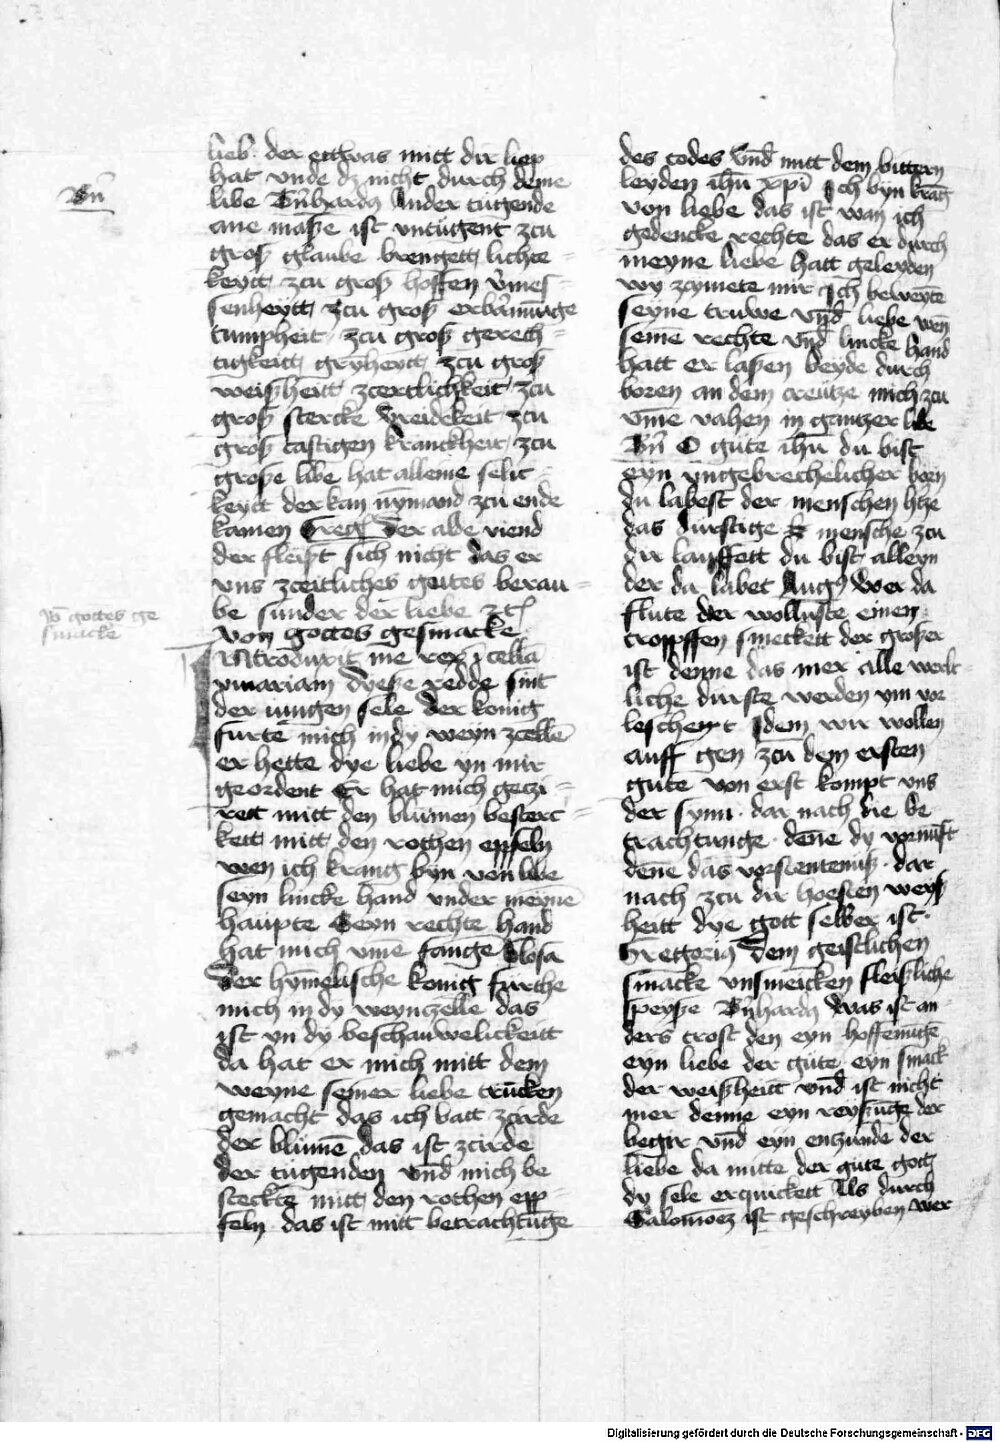 lieb. der ettwas mitt dir liep
hat vnde dz nicht durch deine
libe Bn̄hardꝰ Ander tugende
ane maße ist vntugent zcu
groß glaube brengett lichte
keytt, zcu groß hoffen v̄mes-
senheytt, zcu groß erbarmūge
tumpheit, zcu groß gerech-
tigkeitt, zcu groß
weißheitt, zcertlichkeit, zcu
groß stercke zcu
groß castigen kranckheit, zcu
große libe hat alleine selic
keytt der kan nymand zcu ende
komen Greg der alde viend
der fleist sich nicht das er
vns zceitliches gutes berau-
be sunder der liebe ꝛc
Von gottes gesmacke
INtroduxit me rex ī cellā
vinariam Dyeße redde sint
der iungen sele der konig
furte mich in dy weyn zcelle
er hette dye liebe yn mir
geordent Er hat mich geczi-
rett mitt den blumen besterc-
kett mitt den rothen eppfeln
wen ich krang byn von libe
seyn lincke hand vnder meynē
haupte Seyn rechte hand
hat mich vmē fange Glosa
Der hymelische konig furthe
mich in dy weynzcelle das
ist yn dy beschauwelickeitt
da hat er mich mitt dem
weyne seiner liebe truncken
gemacht das ich batt zcirde
der blumē das ist zcirde
der tugenden vnd mich be
steckte mitt den rothen epp-
feln. das ist mitt betrachtūge
des todes vnd mitt dem bittern
leyden ih̄u xpī Ich byn krāg
von liebe das ist wan ich
gedencke rechte das er durch
meyne liebe hatt geleyden
wy zcymete mir Ich beweyte
seyne truwe vnd liebe wen
seine rechte vnd lincke hand
hatt er laßen beyde durch
boren an dem creutze mich zcu
vme vahen in gantzer libe
Bn̄ O gute ih̄u du bist
eyn vngebrechelicher born
du labest der menschen hitze
das durstige mensche zcu
dir lauffett du bist alleyn
der da labet Augꝰ Wer da
flute der wolluste einen
troppffen smeckett der großer
ist denne das mer alle werlt-
liche durste werden ym vor
leschent Idem wir wollen
auff gen zcu dem ersten
gute von erst kompt vns
der synn. dar nach die be
trachtunge. dēne dy vornūfft
dēne das vorstentenuß. dar
nach zcu dir hoesten weyß
heitt dye gott selber ist.
Gregoriꝰ Dem geistlichen
smacke vnsmecken fleislliche
speyße Bn̄hardꝰ Was ist an
ders trost den eyn hoffenūge
eyn liebe der gute eyn smack
der weißheitt vnd ist nicht
mer denne eyn reyßūge der
begir vnd eyn enzunde der
liebe da mitte der gute gott
dy sele erquickett Als durch
Salomoē ist geschreyben wer
Bn̄
Vō gottes ge
smacke
Digitalisierung gefördert durch die Deutsche Forschungsgemeinschaft - DFG